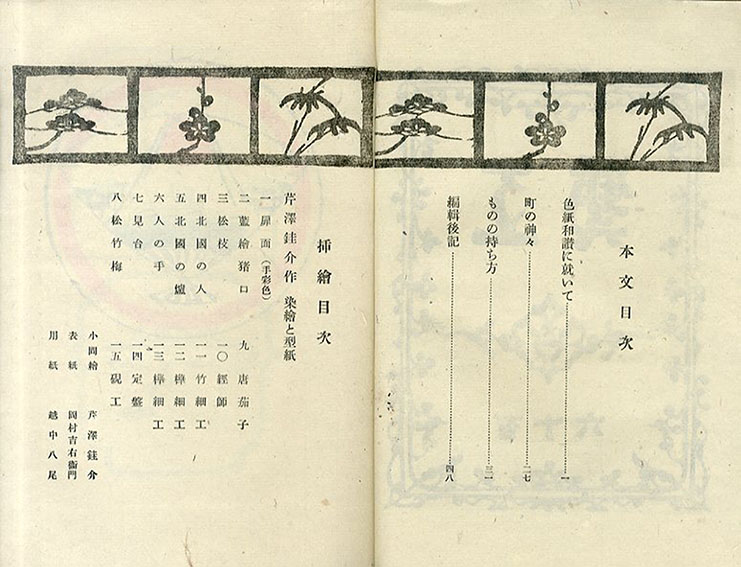 本文目次
色紙和讃に就いて……一
町の神々……二七
ものの持ち方……三一
編輯後記……四八
挿繪目次
芹澤銈介作 染繪と型紙
一扉面(手彩色)
二藍繪猪口
三松枝
四北國の人
五北國の爐
六人の手
七見台
八松竹梅
九唐茄子
一〇經師
一一竹細工
一二樺細工
一三樺細工
一四定盤
一五硯工
小間繪 芹澤銈介
表紙 岡村吉右衞門
用紙 越中八尾